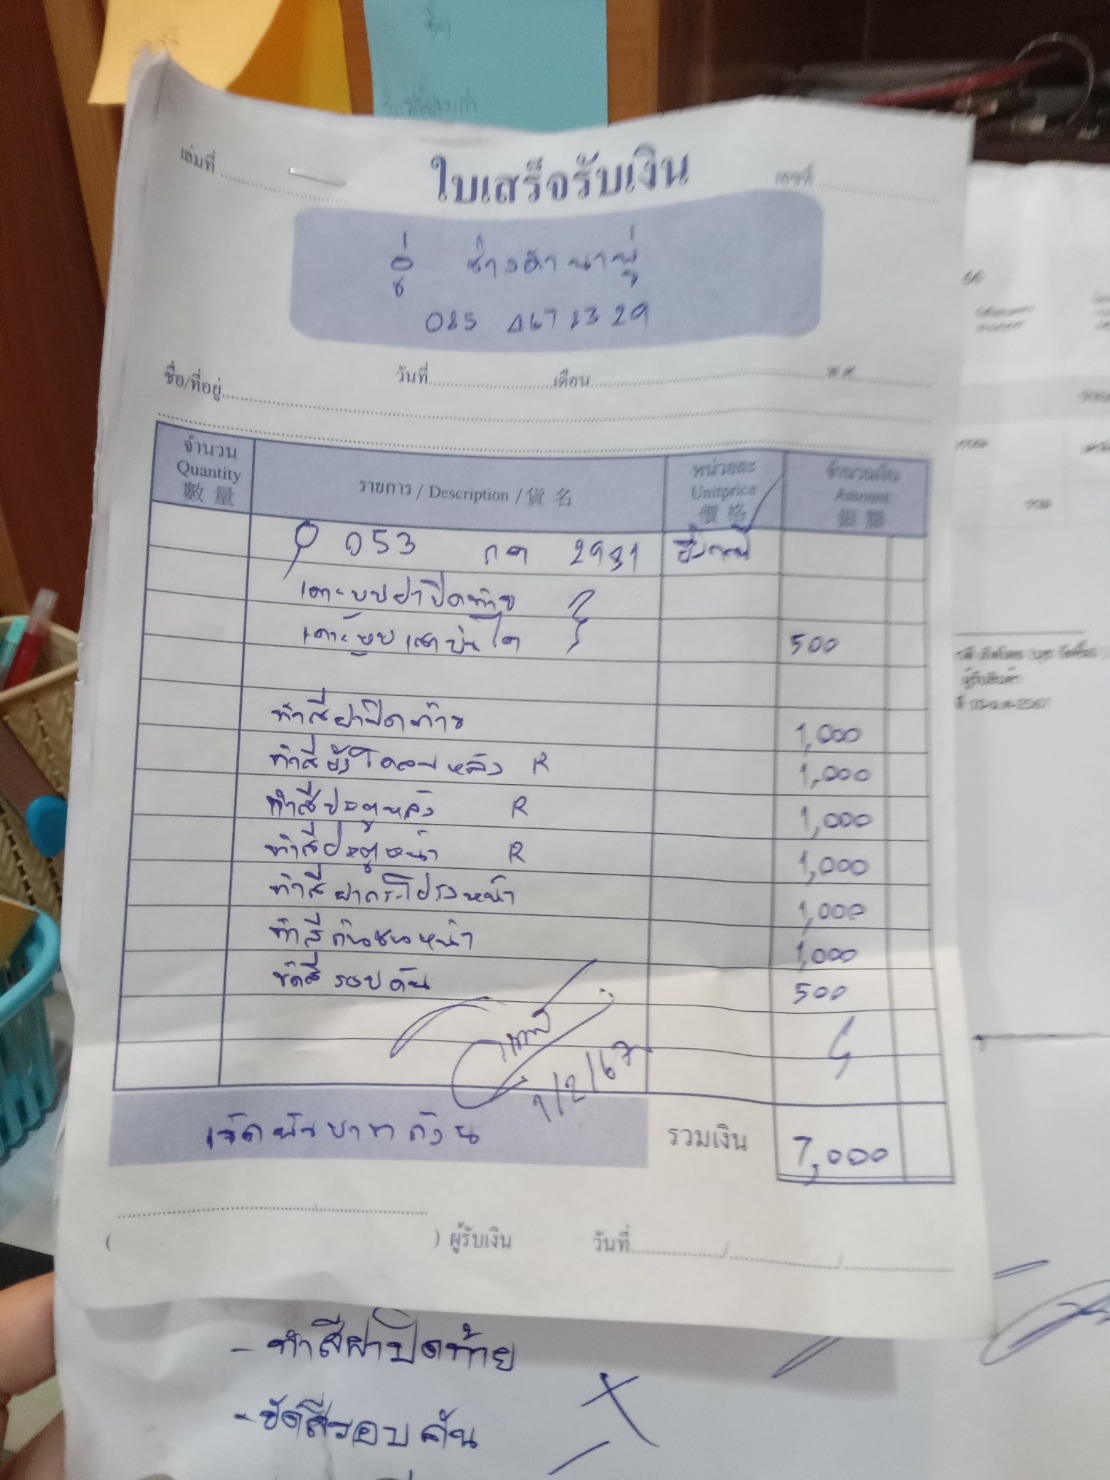 เล่มที่
ใบเสร็จรับเงิน
เลขที่
อู่ ช่างดำนาพู่
085 4678329
ชื่อ/ที่อยู่ วันที่ เดือน พ.ศ.
จำนวน
Quantity
數 量
รายการ / Description / 貨 名
หน่วยละ
Unitprice
價 格
จำนวนเงิน
Amount
銀 額
053 กค 2981
เคาะบุบฝาปิดท้าย
เคาะบุบเสาบันได 500
ทำสีฝาปิดท้าย 1,000
ทำสีบังโคลนหลัง R 1,000
ทำสีประตูหลัง R 1,000
ทำสีประตูหน้า R 1,000
ทำสีฝากระโปรงหน้า 1,000
ทำสีกันชนหน้า 1,000
ขัดสีรอบคัน 500
1/2/67
เจ็ดพันบาทถ้วน รวมเงิน 7,000
( ) ผู้รับเงิน วันที่ / /
- ทำสีฝาปิดท้าย
- ขัดสีรอบคัน